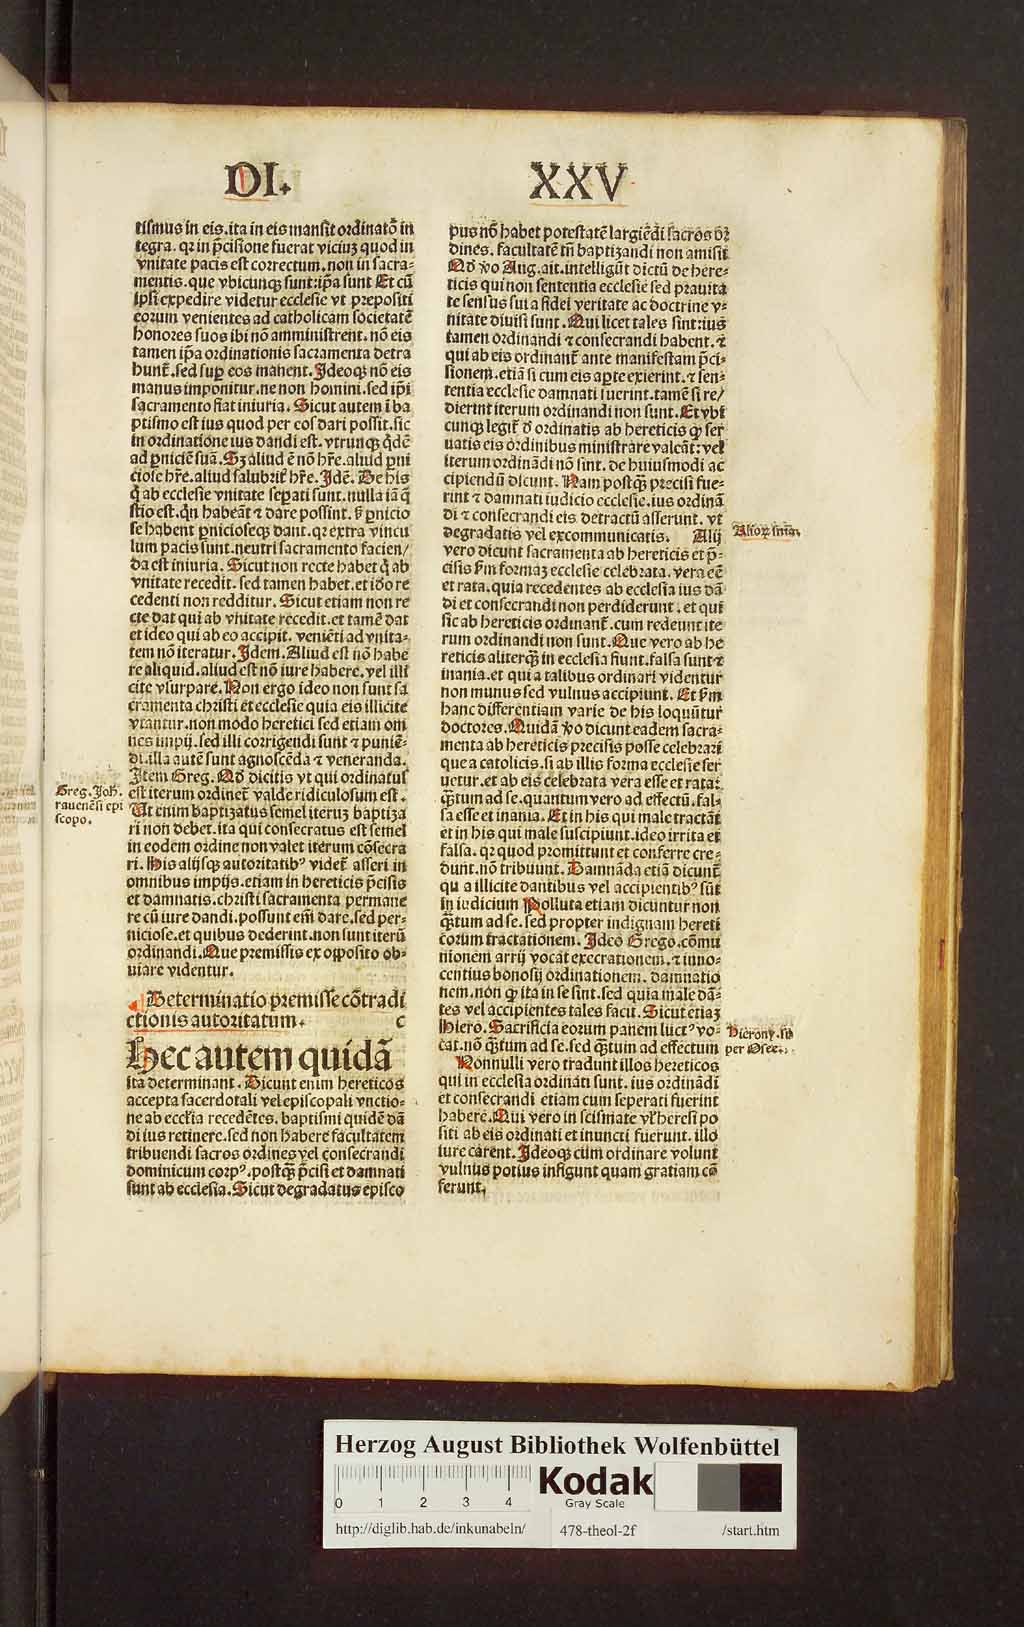 DI. XXV
tismus in eis.ita in eis mansit ordinatō in
tegra. qꝛ in p̄cisione fuerat viciuꝫ quod in
vnitate pacis est correctum.non in sacra-
mentis.que vbicunqꝫ sunt:ip̄a sunt Et cū
ipsi expedire videtur ecclesie vt prepositi
eorum venientes ad catholicam societatē
honores suos ibi nō amministrent.nō eis
tamen ip̄a ordinationis sacramenta detra
hunt̄.sed suꝑ eos manent.Ideoqꝫ nō eis
manus imponitur.ne non homini.sed ip̄i
sacramento fiat iniuria.Sicut autem ī ba
ptismo est ius quod per eos dari possit.sic
in ordinatione ius dandi est.vtrunqꝫ q̇dē
ad ꝑniciē suā.Sꝫ aliud ē nō hr̄e.aliud ꝑni
ciose hr̄e.aliud salubrit̄ hr̄e.Idē.De his
q̇ ab ecclesie vnitate seꝑati sunt.nulla iā q̄
stio est.q̇n habeāt ⁊ dare possint.ꝯ̄ ꝑnicio
se habent ꝑnicioseqꝫ dant.qꝛ extra vincu
lum pacis sunt.neutri sacramento facien/
da est iniuria.Sicut non recte habet q̇ ab
vnitate recedit.sed tamen habet.et iđo re
cedenti non redditur.Sicut etiam non re
cte dat qui ab vnitate recedit.et tamē dat
et ideo qui ab eo accipit. veniēti ad vnita-
tem nō iteratur.Idem.Aliud est nō habe
re aliquid.aliud est nō iure habere.vel illi
cite vsurpare.Non ergo ideo non sunt sa
cramenta christi et ecclesie quia eis illicite
vtantur.non modo heretici sed etiam om
nes impij.sed illi corrigendi sunt ⁊ puniē-
di.illa autē sunt agnoscēda ⁊ veneranda.
Item Greg. Qđ dicitis vt qui ordinatus
est iterum ordinet̄ valde ridiculosum est.
Ut enim baptizatus semel iteruꝫ baptiza
ri non debet.ita qui consecratus est semel
in eodem ordine non valet iterum cōsecra
ri.His alijsqꝫ autoritatibꝰ videt̄ asseri in
omnibus impijs.etiam in hereticis p̄cisis
et damnatis.christi sacramenta permane
re cū iure dandi.possunt em̄ dare.sed per-
niciose.et quibus dederint.non sunt iterū
ordinandi.Que premissis ex opposito ob-
uiare videntur.
Determinatio premisse cōtradi
ctionis autoritatum. C
Hec autem quidā
ita determinant.Dicunt enim hereticos
accepta sacerdotali vel episcopali vnctio-
ne ab eccl̄ia recedētes.baptismi quidē dā
di ius retinere.sed non habere facultatem
tribuendi sacros ordines vel consecrandi
dominicum corpꝰ.postq̄ꝫ p̄cisi et damnati
sunt ab ecclesia.Sicut degradatus episco
Greg.Joh̄.
rauenēsi epi
scopo.
pus nō habet potestatē largiēdi sacros or
dines. facultatē tn̄ baptizandi non amisit
Qđ ꝟo Aug.ait.intelligūt dictū de here-
ticis qui non sententia ecclesie sed prauita
te sensus sui a fidei veritate ac doctrine v-
nitate diuisi sunt.Qui licet tales sint:ius
tamen ordinandi ⁊ consecrandi habent.⁊
qui ab eis ordinant̄ ante manifestam p̄ci-
sionem.etiā si cum eis aꝑte exierint.⁊ sen-
tentia ecclesie damnati fuerint.tamē si re/
dierint iterum ordinandi non sunt.Et vbi
cunqꝫ legit̄ đ ordinatis ab hereticis ꝙ ser
uatis eis ordinibus ministrare valeāt:vel
iterum ordinādi nō sint.de huiusmodi ac
cipiendū dicunt.Nam postq̄ꝫ precisi fue-
rint ⁊ damnati iudicio ecclesie.ius ordinā
di ⁊ consecrandi eis detractū asserunt.vt
degradatis vel excommunicatis. Alij
vero dicunt sacramenta ab hereticis et p̄-
cisis ẜm formaꝫ ecclesie celebrata.vera eē
et rata.quia recedentes ab ecclesia ius dā
di et consecrandi non perdiderunt.et qui
sic ab hereticis ordinant̄.cum redeunt ite
rum ordinandi non sunt.Que vero ab he
reticis aliterq̄ꝫ in ecclesia fiunt.falsa sunt ⁊
inania.et qui a talibus ordinari videntur
non munus sed vulnus accipiunt.Et ẜm
hanc differentiam varie de his loquūtur
doctores.Quidā ꝟo dicunt eadem sacra-
menta ab hereticis precisis posse celebrari
que a catolicis.si ab illis forma ecclesie ser
uetur.et ab eis celebrata vera esse et rata:
q̄ꝫtum ad se.quantum vero ad effectū.fal-
sa esse et inania.Et in his qui male tractāt
et in his qui male suscipiunt.ideo irrita et
falsa.qꝛ quod promittunt et conferre cre-
dunt.nō tribuunt.Damnāda etiā dicunt̄
qu a illicite dantibus vel accipientibꝰ sūt
in iudicium Polluta etiam dicuntur non
q̄ꝫtum ad se.sed propter indignam hereti
corum tractationem.Ideo Grego.cōmu
nionem arrij vocat execrationem.⁊ inno-
centius bonosij ordinationem.damnatio
nem.non ꝙ ita in se sint.sed quia male dā-
tes vel accipientes tales facit.Sicut etiaꝫ
Hiero.Sacrificia eorum panem luctꝰ vo-
cat.nō q̄ꝫtum ad se.sed q̄ꝫtum ad effectum
Nonnulli vero tradunt illos hereticos
qui in ecclesia ordinati sunt. ius ordinādi
et consecrandi etiam cum seperati fuerint
habere.Qui vero in scismate vl̄ heresi po
siti ab eis ordinati et inuncti fuerunt.illo
iure carent.Ideoqꝫ cum ordinare volunt
vulnus potius infigunt quam gratiam cō
ferunt.
Alioꝝ sn̄ia.
Hierony.su
per Osee.
Herzog August Bibliothek Wolfenbüttel
0 1 2 3 4
Kodak
Gray Scale
http://diglib.hab.de/inkunabeln/ 478-theol-2f /start.htm